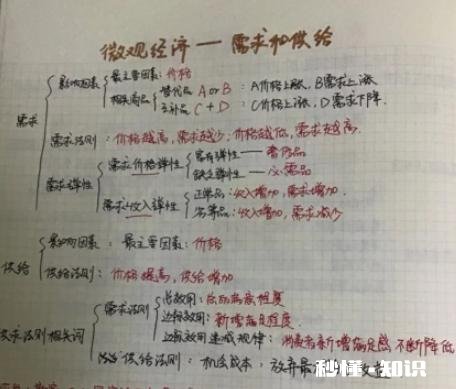 微观经济 — 需求和供给
影响因素 最主要因素：价格
相关商品 替代品 A or B：A价格上涨，B需求上涨
互补品 C + D：C价格上涨，D需求下降.
需求
需求法则：价格越高，需求越少；价格越低，需求越高.
需求弹性 需求价格弹性 富有弹性 — 奢侈品
缺乏弹性 — 必需品
需求收入弹性 正常品：收入增加，需求增加.
劣等品：收入增加，需求减少
影响因素：最主要因素：价格
供给
供给法则：价格提高，供给增加
需求法则 总效用：总的满意程度
边际效用：新增满足程度.
求法则相关词
边际效用递减规律：消费者新增满足感不断降低
供给法则：机会成本：放弃最
秒懂·知识